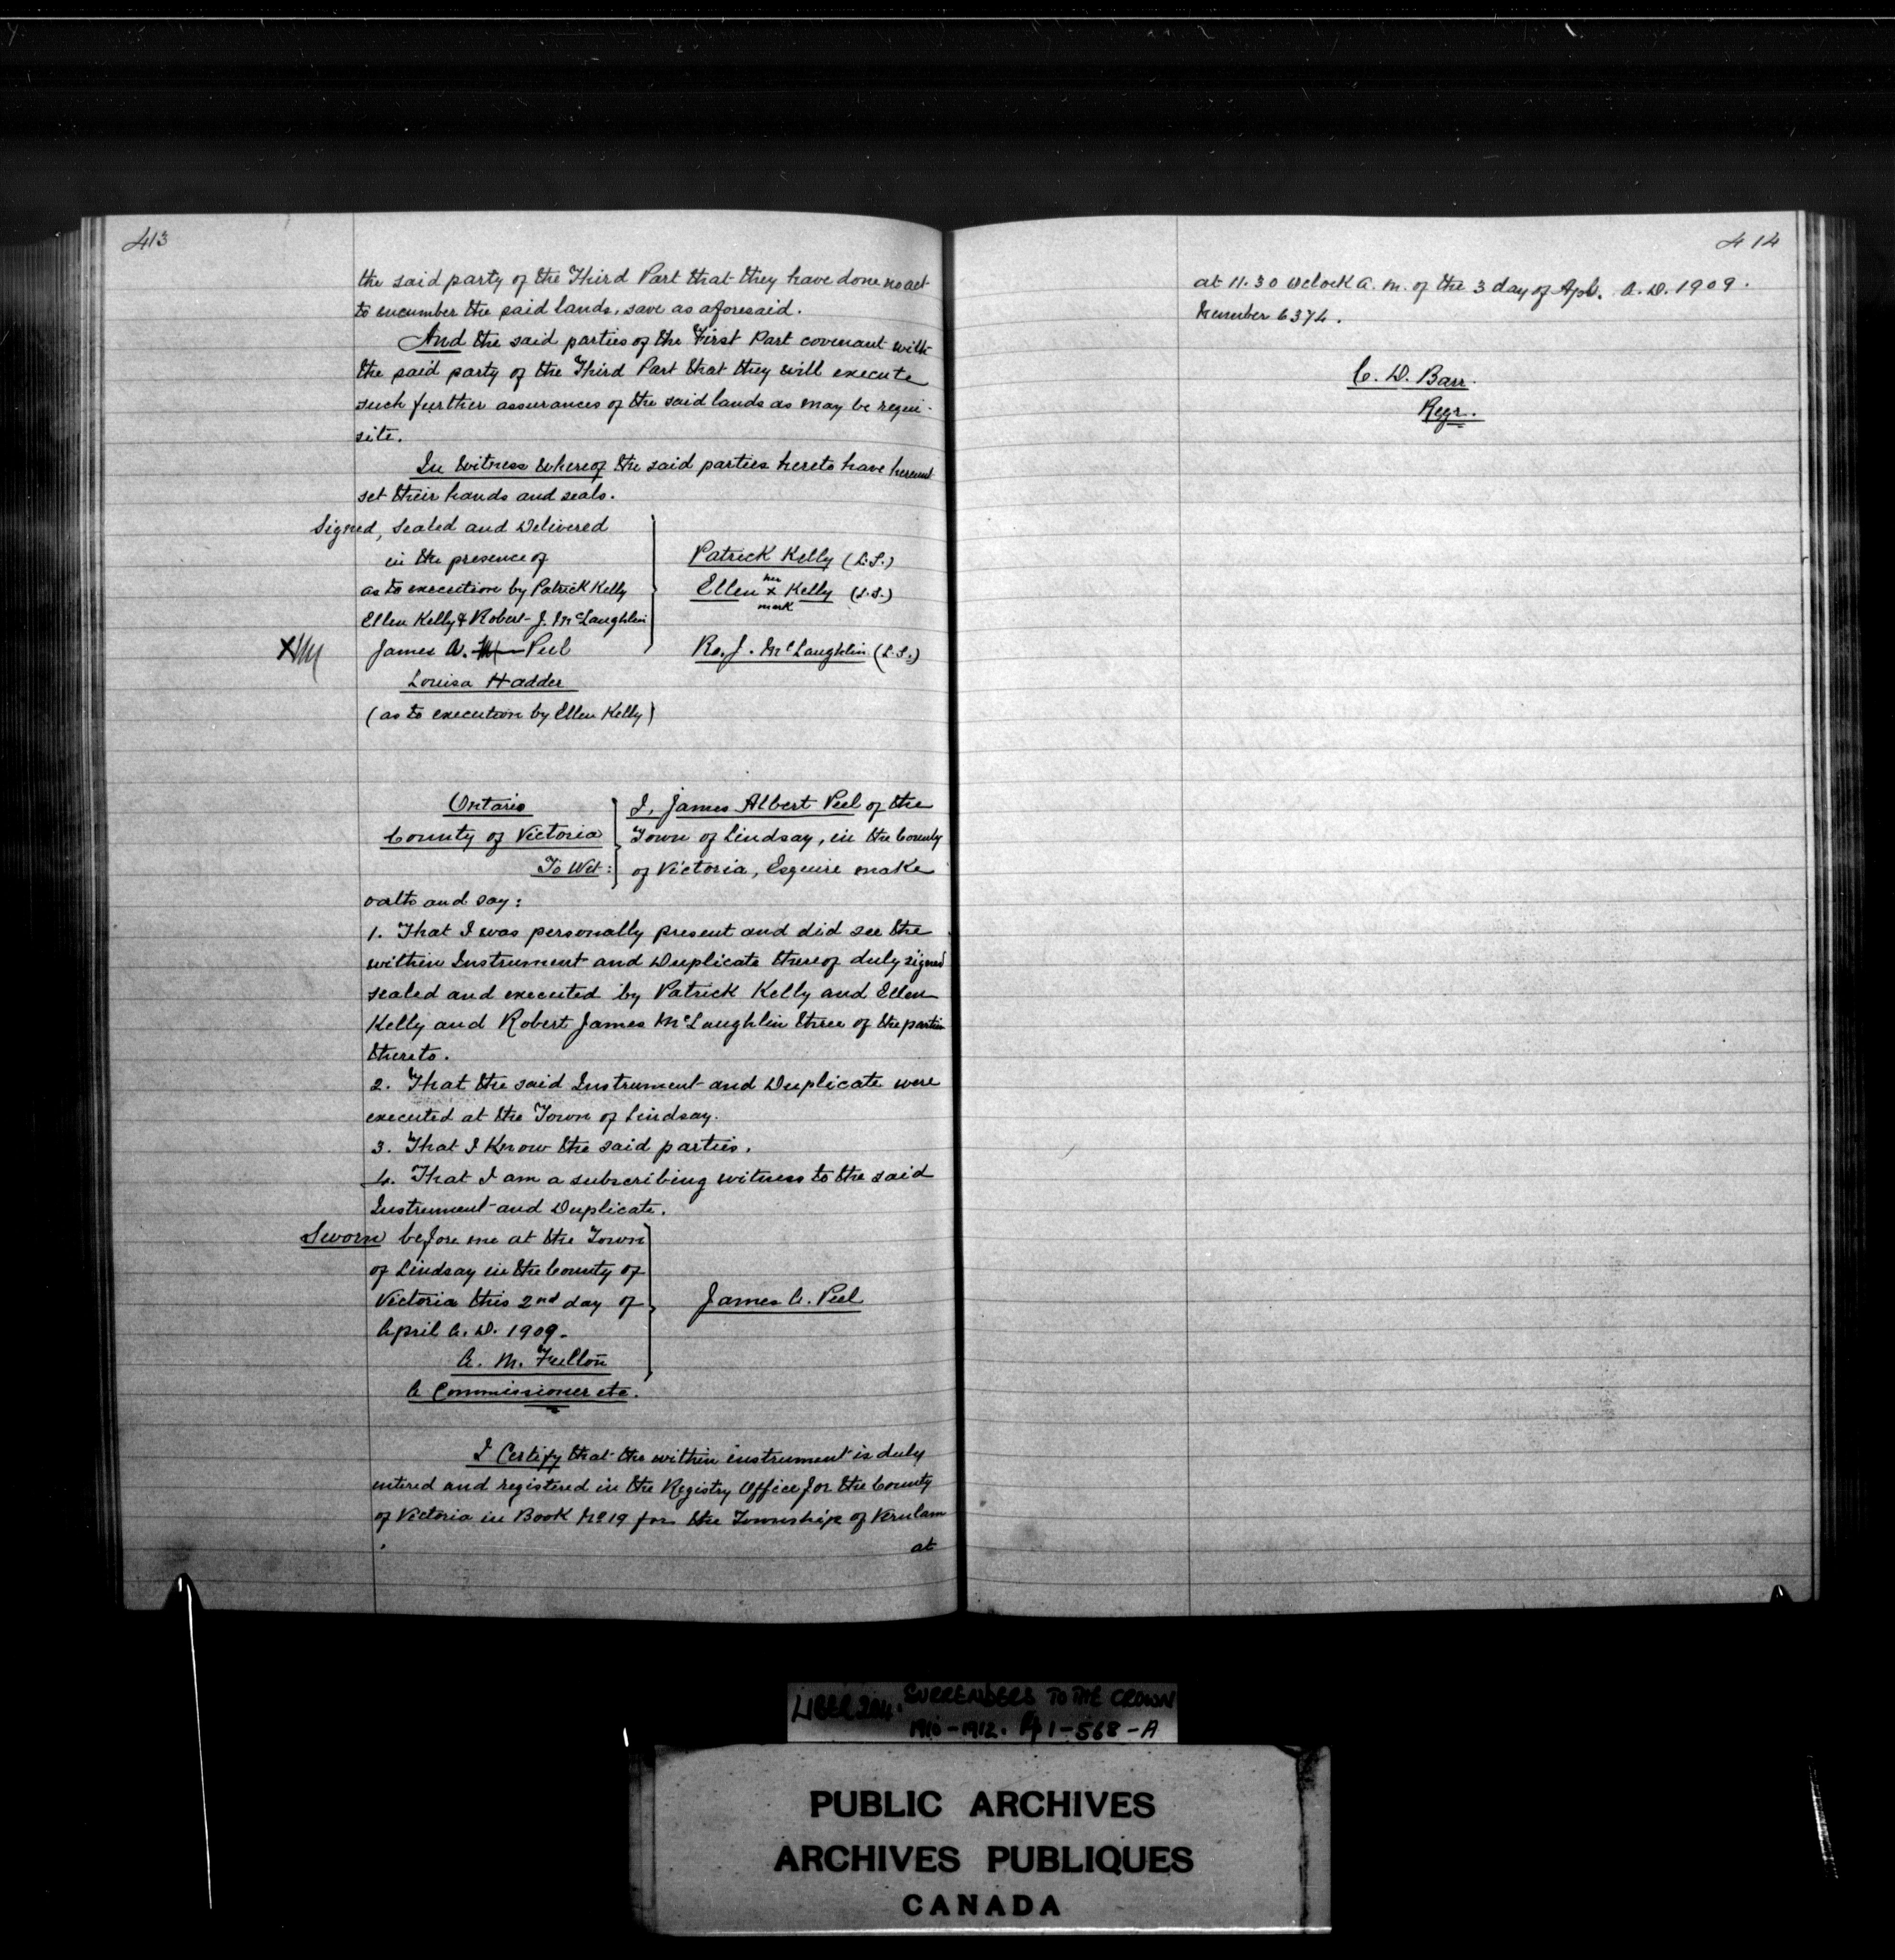 413
the said party of the Third Part that they have done no act
to encumber the said lands, save as aforesaid.
And the said parties of the First Part covenant with
the said party of the Third Part that they will execute
such further assurances of the said lands as may be requi-
site.
In Witness Whereof the said parties hereto have hereunt
set their hands and seals.
Signed, Sealed and Delivered
in the presence of
as to execution by Patrick Kelly
Ellen Kelly & Robert J. McLaughlin
James A. Peel
Louisa Hadder
(as to execution by Ellen Kelly)
Patrick Kelly (L.S.)
Ellen her x mark Kelly (L.S.)
Ro. J. McLaughlin (L.S.)
Ontario
County of Victoria
To Wit:
I, James Albert Peel of the
Town of Lindsay, in the County
of Victoria, Esquire make
oath and say:
1. That I was personally present and did see the
within Instrument and Duplicate thereof duly signed
sealed and executed by Patrick Kelly and Ellen
Kelly and Robert James McLaughlin three of the parties
thereto.
2. That the said Instrument and Duplicate were
executed at the Town of Lindsay.
3. That I Know the said parties.
4. That I am a subscribing witness to the said
Instrument and Duplicate.
Sworn before me at the Town
of Lindsay in the County of
Victoria this 2nd day of
April A. D. 1909.
A. M. Fulton
A Commissioner etc.
James A. Peel
I Certify that the within instrument is duly
entered and registered in the Registry Office for the County
of Victoria in Book No 19 for the Township of Verulam
at
414
at 11.30 oclock A. M. of the 3 day of Apl. A. D. 1909.
Number 6374.
C. D. Barr.
Regr.
LIBER 204. SURRENDERS TO THE CROWN
1910-1912. Pp 1-568-A
PUBLIC ARCHIVES
ARCHIVES PUBLIQUES
CANADA